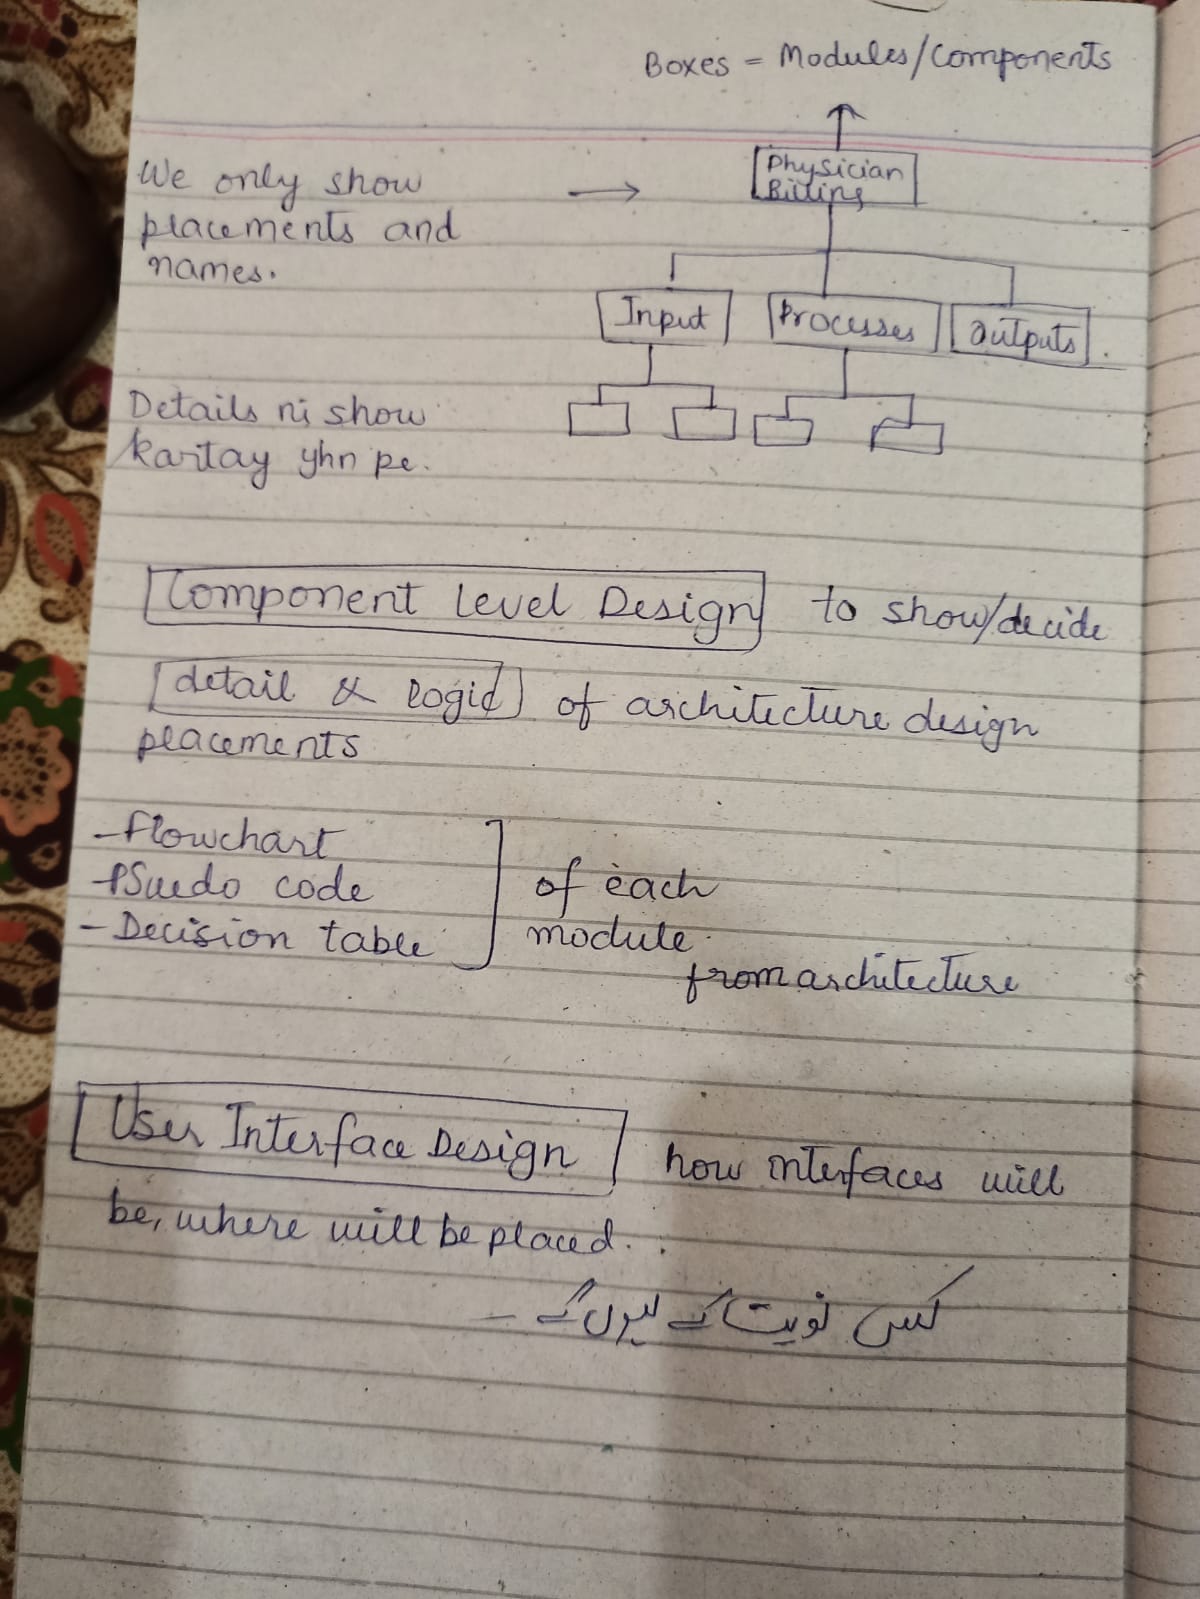 Boxes = Modules/Components
We only show
placements and
names.
Physician
Billing
Input
Processes
Outputs
Details ni show
kartay yhn pe.
Component Level Design to show/decide
detail & logic of architecture design
placements
- Flowchart
- PSuedo code
- Decision table
of each
module
from architecture
User Interface Design how interfaces will
be, where will be placed.
کس نویت کے ہوں گے -